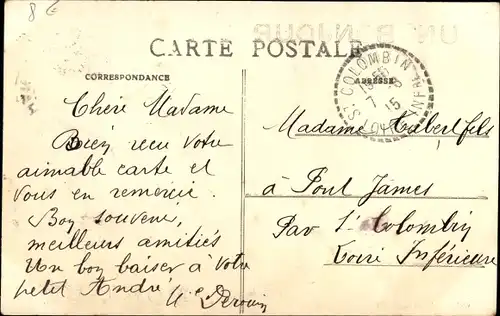 8 €
UN BONJOUR
CARTE POSTALE
CORRESPONDANCE
ADRESSE
ST COLOMBIN
LOIRE INF
7
15
Chère Madame
Bien reçu votre
aimable carte et
vous en remercie.
Bon souvenir,
meilleurs amitiés
Un bon baiser à votre
petit André
Madame fils
à Pont James
Par St Colombin
Loire Inférieure